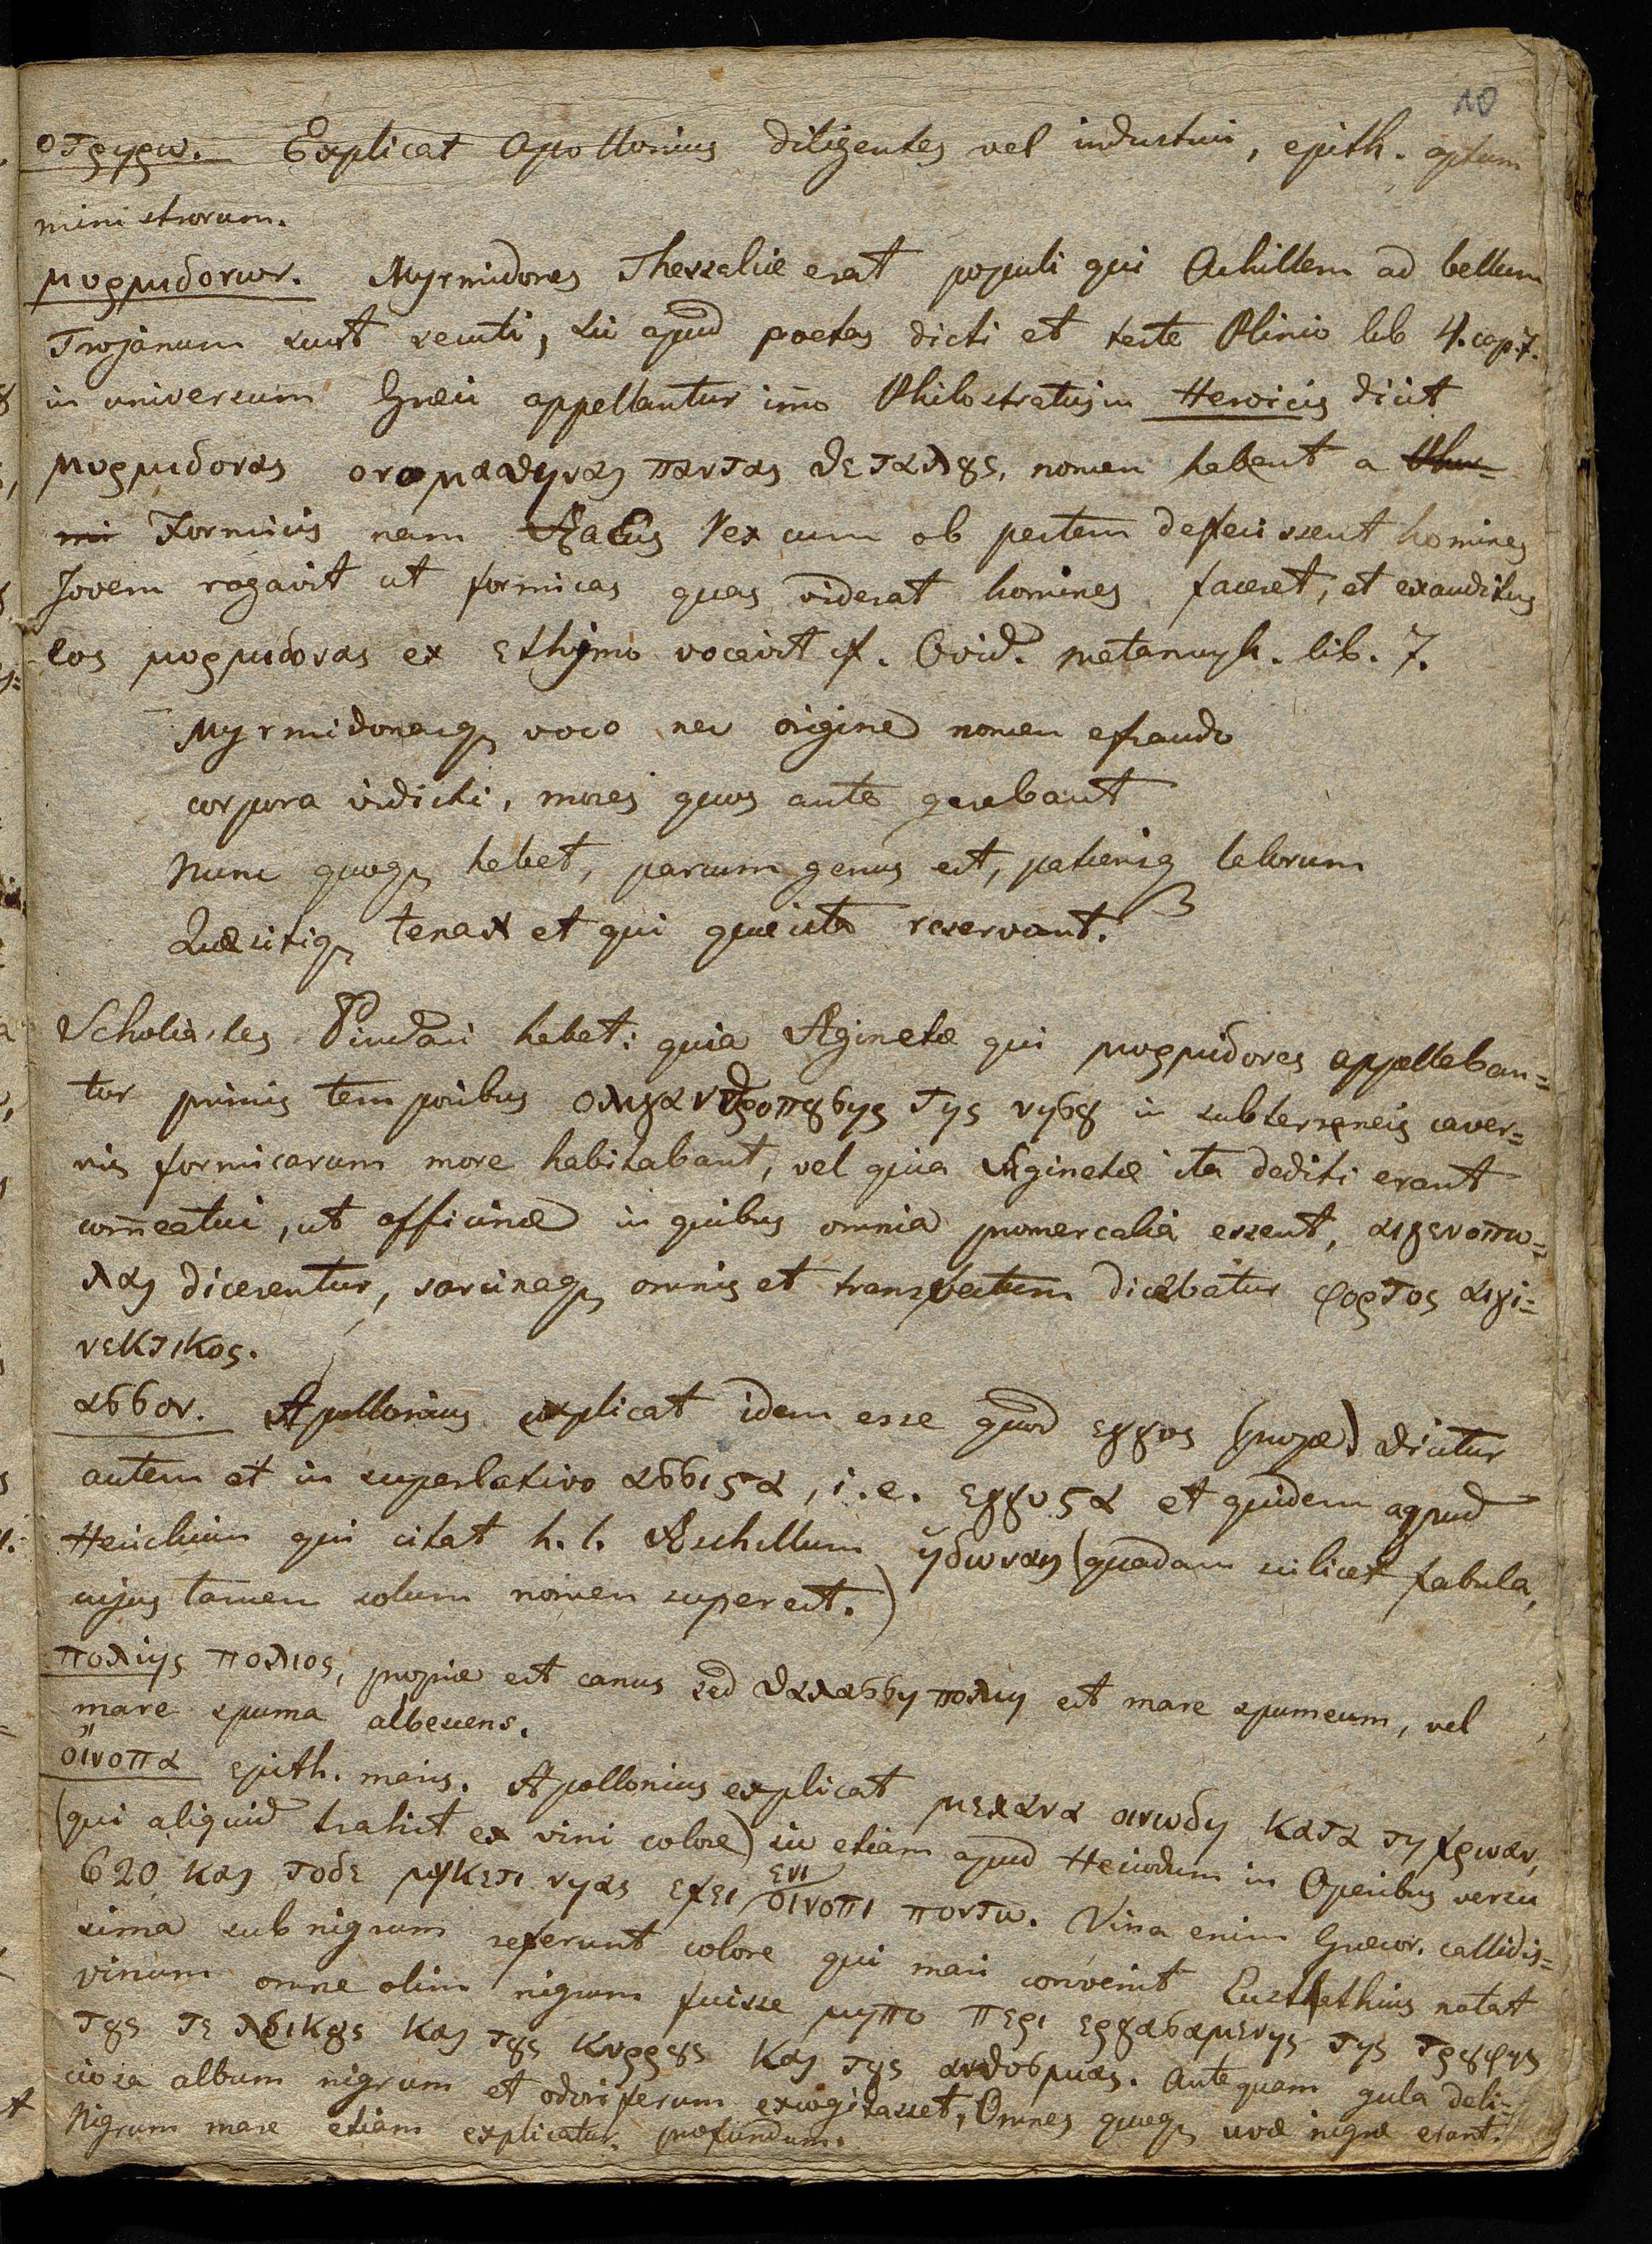 10
οτρηρω. Explicat Apollonius diligentes vel industrii, epith. aptum
ministrorum.
μυρμιδονων. Myrmidones Thessaliæ erat populi qui Achillem ad bellum
Trojanum sunt secuti, sic apud poetas dicti et teste Plinio lib 4. cap. 7.
in universum Græci appellantur imo Philostratus in Heroicis dicit
μυρμιδονας ονομασθηναι παντας θεταλȣς, nomen habent a
Formicis nam Æacus Rex cum ob pestem defecissent homines
Jovem rogavit ut formicas quas viderat homines faceret, et exauditus
eos μυρμιδονας ex ethymo vocavit cf. Ovid. metamorph. lib. 7.
Myrmidonasq voco nec origine nomen efraudo
corpora vidisti, mores quos ante gerebant
Nunc quoq habet, parcum genus est, patiensq laborum
Quæsitiq tenax et qui quæsita reservant.
Scholiastes Pindari habet: quia Æginetæ qui μυρμιδονες appellaban=
tur primis temporibus ολιγανθροπȣσης της νησȣ in subterraneis caver=
nis formicarum more habitabant, vel quia Æginetæ ita dediti erant
com̄eatui, ut officinæ in quibus omnia promercalia essent, αιγενοπω=
λαι dicerentur, sarcinaq omnis et transvectum dicebatur φορτος αιγι=
νεκτικος.
ασσον. Apollonius explicat idem esse quod εγγυς (prope) dicitur
autem et in superlativo ασσιϛα, i.e. εγγυϛα et quidem apud
Hesichium qui citat h. l. Æschillum ηδωναις (quadam scilicet fabula,
cujus tamen solum nomen superest.)
πολιης πολιος, proprie est canus sed θαλασση πολιη est mare spumeum, vel
mare spuma albescens.
οινοπα epith. maris. Apollonius explicat μελανα οινωδη κατα τη χροιαν,
(qui aliquid trahit ex vini colore) sic etiam apud Hesiodum in Operibus versu
620 και τοδε μηκετι νηας εχει ενι οινοπι ποντω. Vina enim Græcor. callidis=
sima subnigrum referunt colore qui mari convenit Eustathius notat
vinum omne olim nigrum fuisse μηπο περι εργασαμενης της τρυφης
τȣς τε λευκȣς και τȣς κυρρȣς και τȣς ανθοσμιας. Antequam gula deli=
ciosa album nigrum et odoriferum excogitasset, Omnes quoq uvæ nigræ erant.
Nigrum mare etiam explicatur profundum.